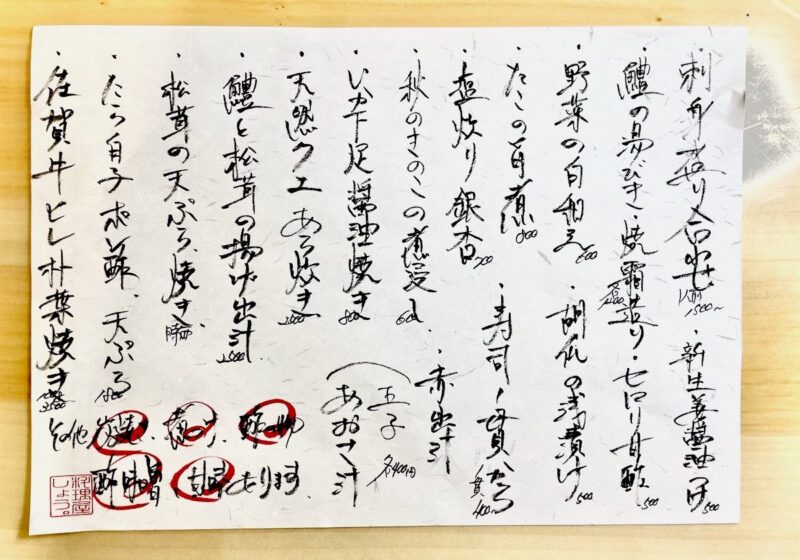 ・刺身盛り合わせ 一人前1500〜
・新生姜醤油つけ 500
・鱧の湯びき・焼霜造り
・セロリ甘酢 500
・野菜の白和え 600
・胡瓜の浅漬け 500
・たこの旨煮 800
・寿司1貫から 1貫400〜
・塩炒り銀杏 700
・赤出汁
・秋のきのこの煮浸し 600
玉子
あおさ汁
各400円
・いか下足醤油焼き 800
・天然クエあら炊き 2500
・鱧と松茸の揚げ出汁 2500
・松茸の天ぷら、焼き 時価
・たら白子ポン酢、天ぷら 1800
・佐賀牛ヒレ朴葉焼き
その他
あります
料理屋
しょう。